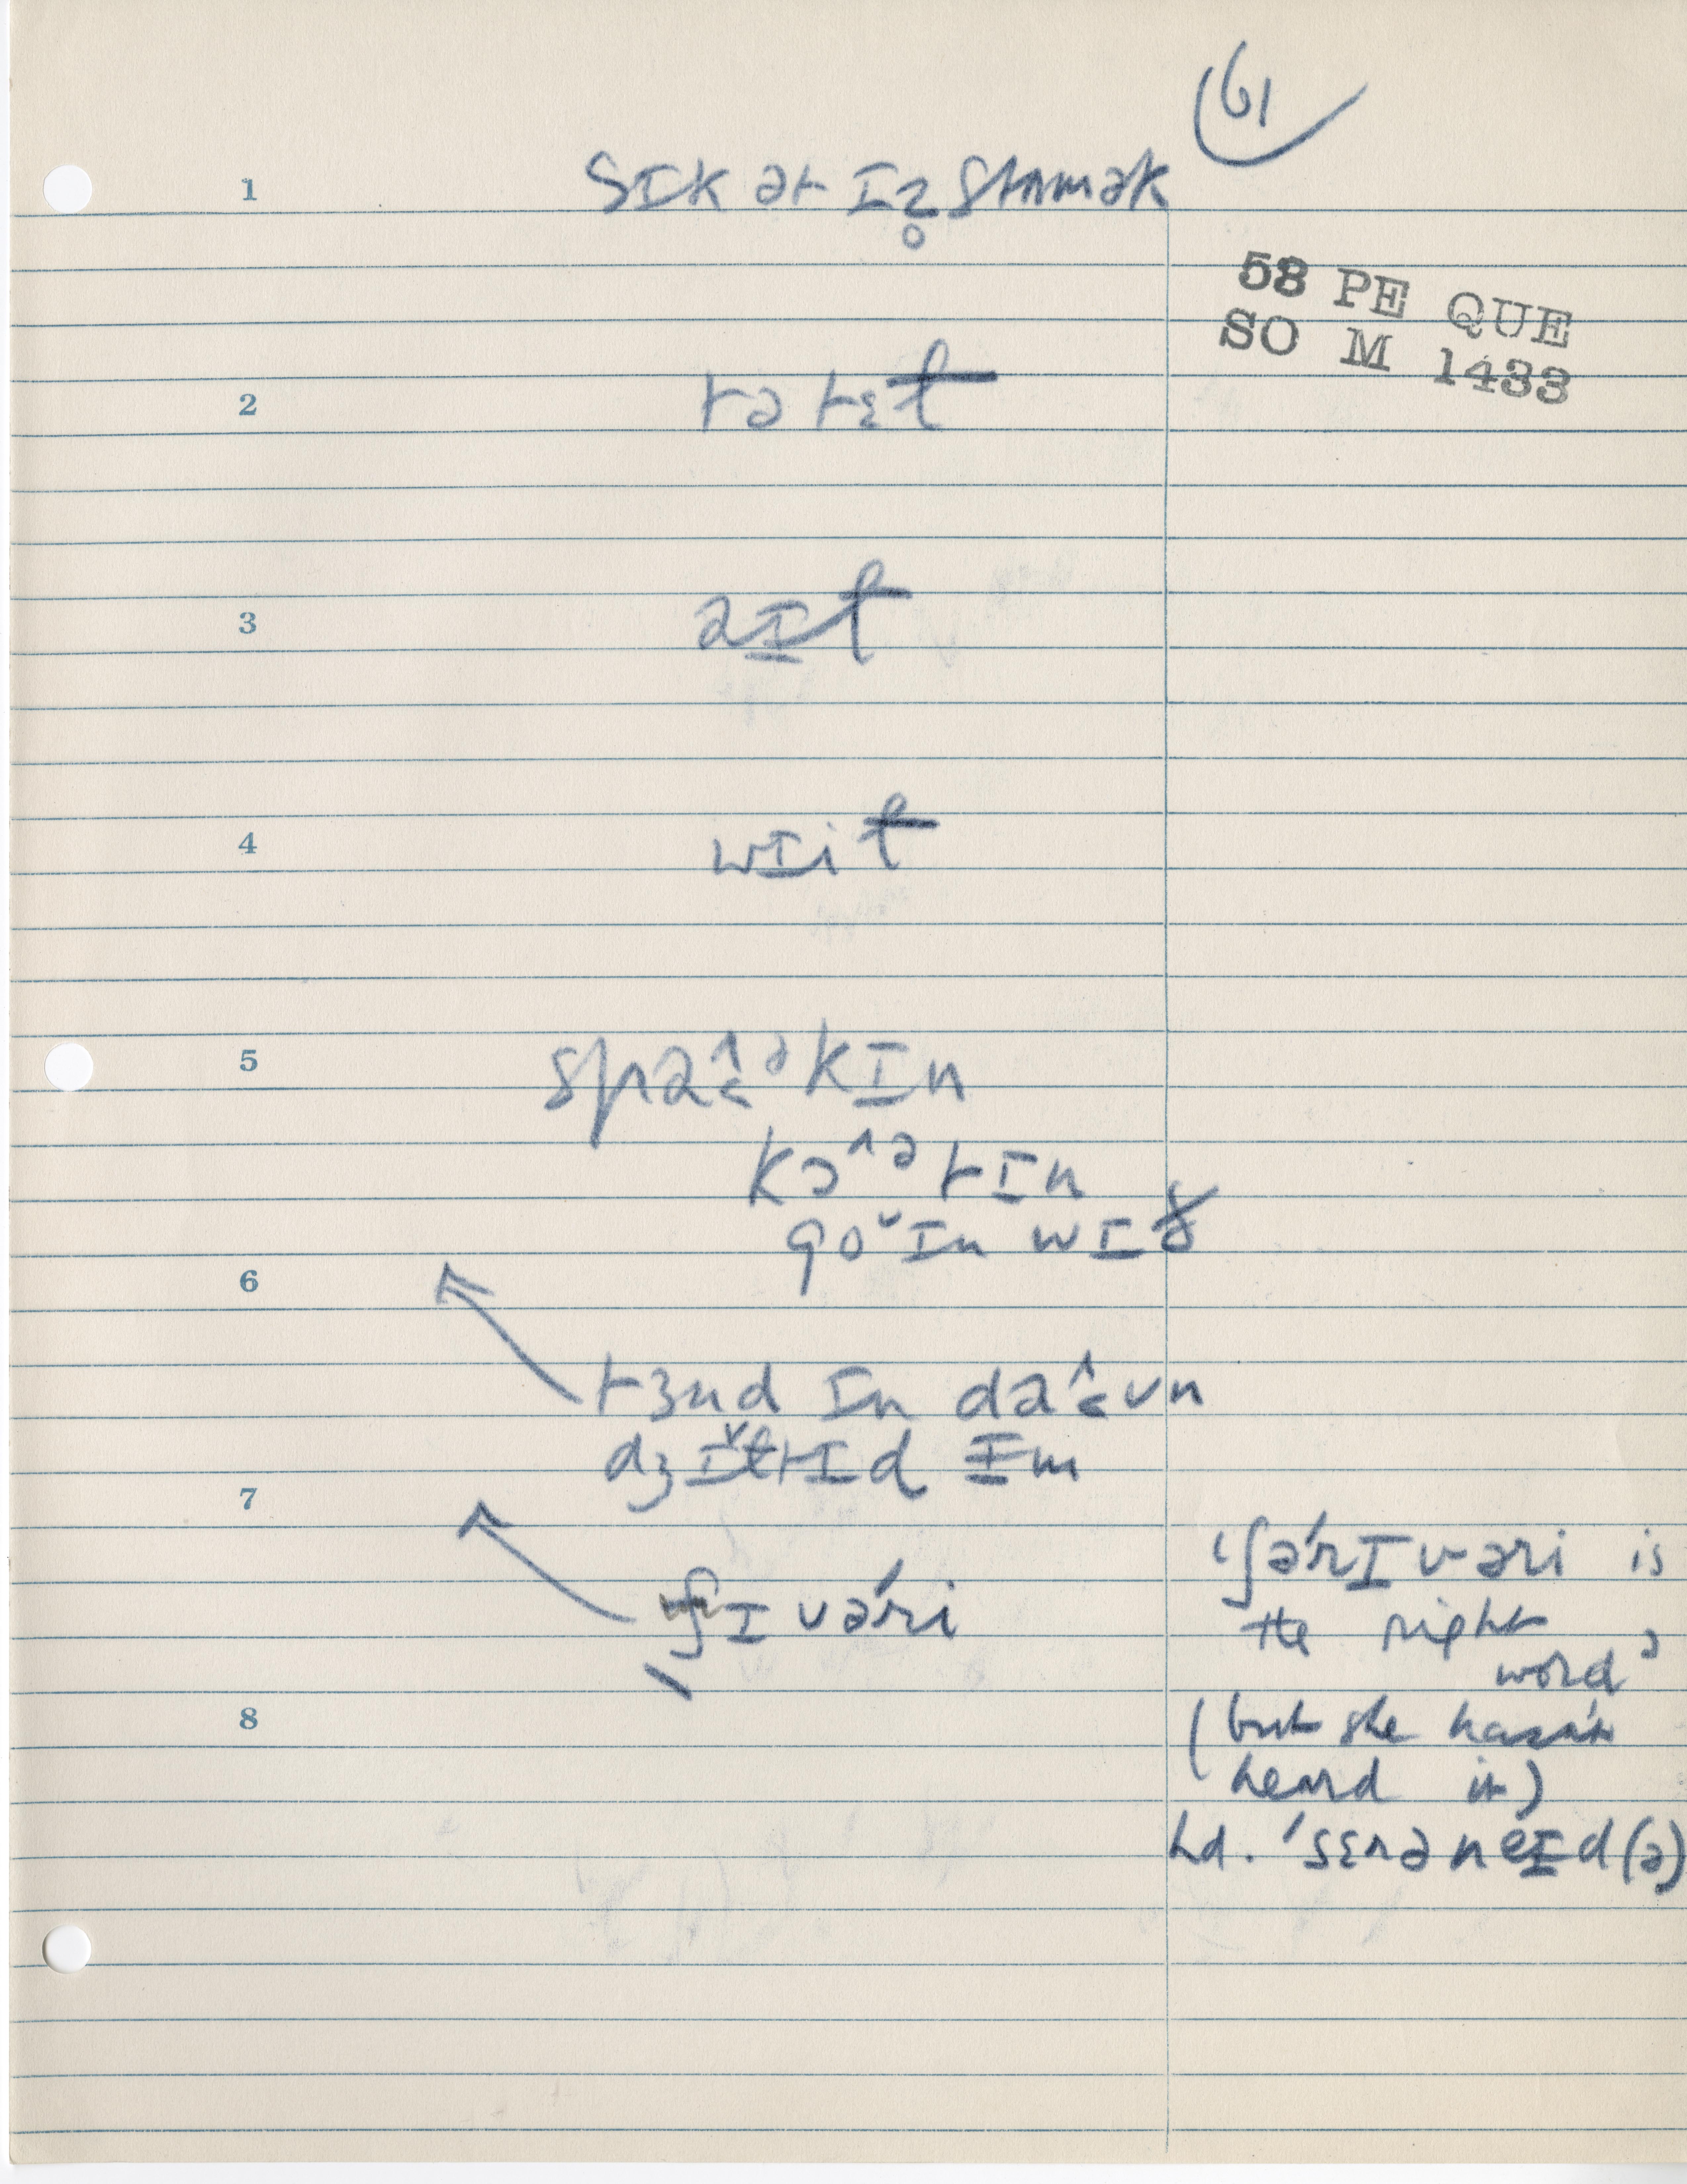 61
1 sɪk ət ɪz̥ stʌmək
58 PE QUE
SO M 1433
2 tə tɛt
3 aɪt
4 wɪit
5 spa^əkɪn
kɔ^ətɪn
goˇɪn wɪð
6
tɜnd ɪn da^ʊn
dʒɪˇltɪd ɨm
7
ʃɪvári
'ʃárɪvəri is
the right
word'
(but she hasn't
heard it)
8
hd. 'sɛrəneɪd(ə)